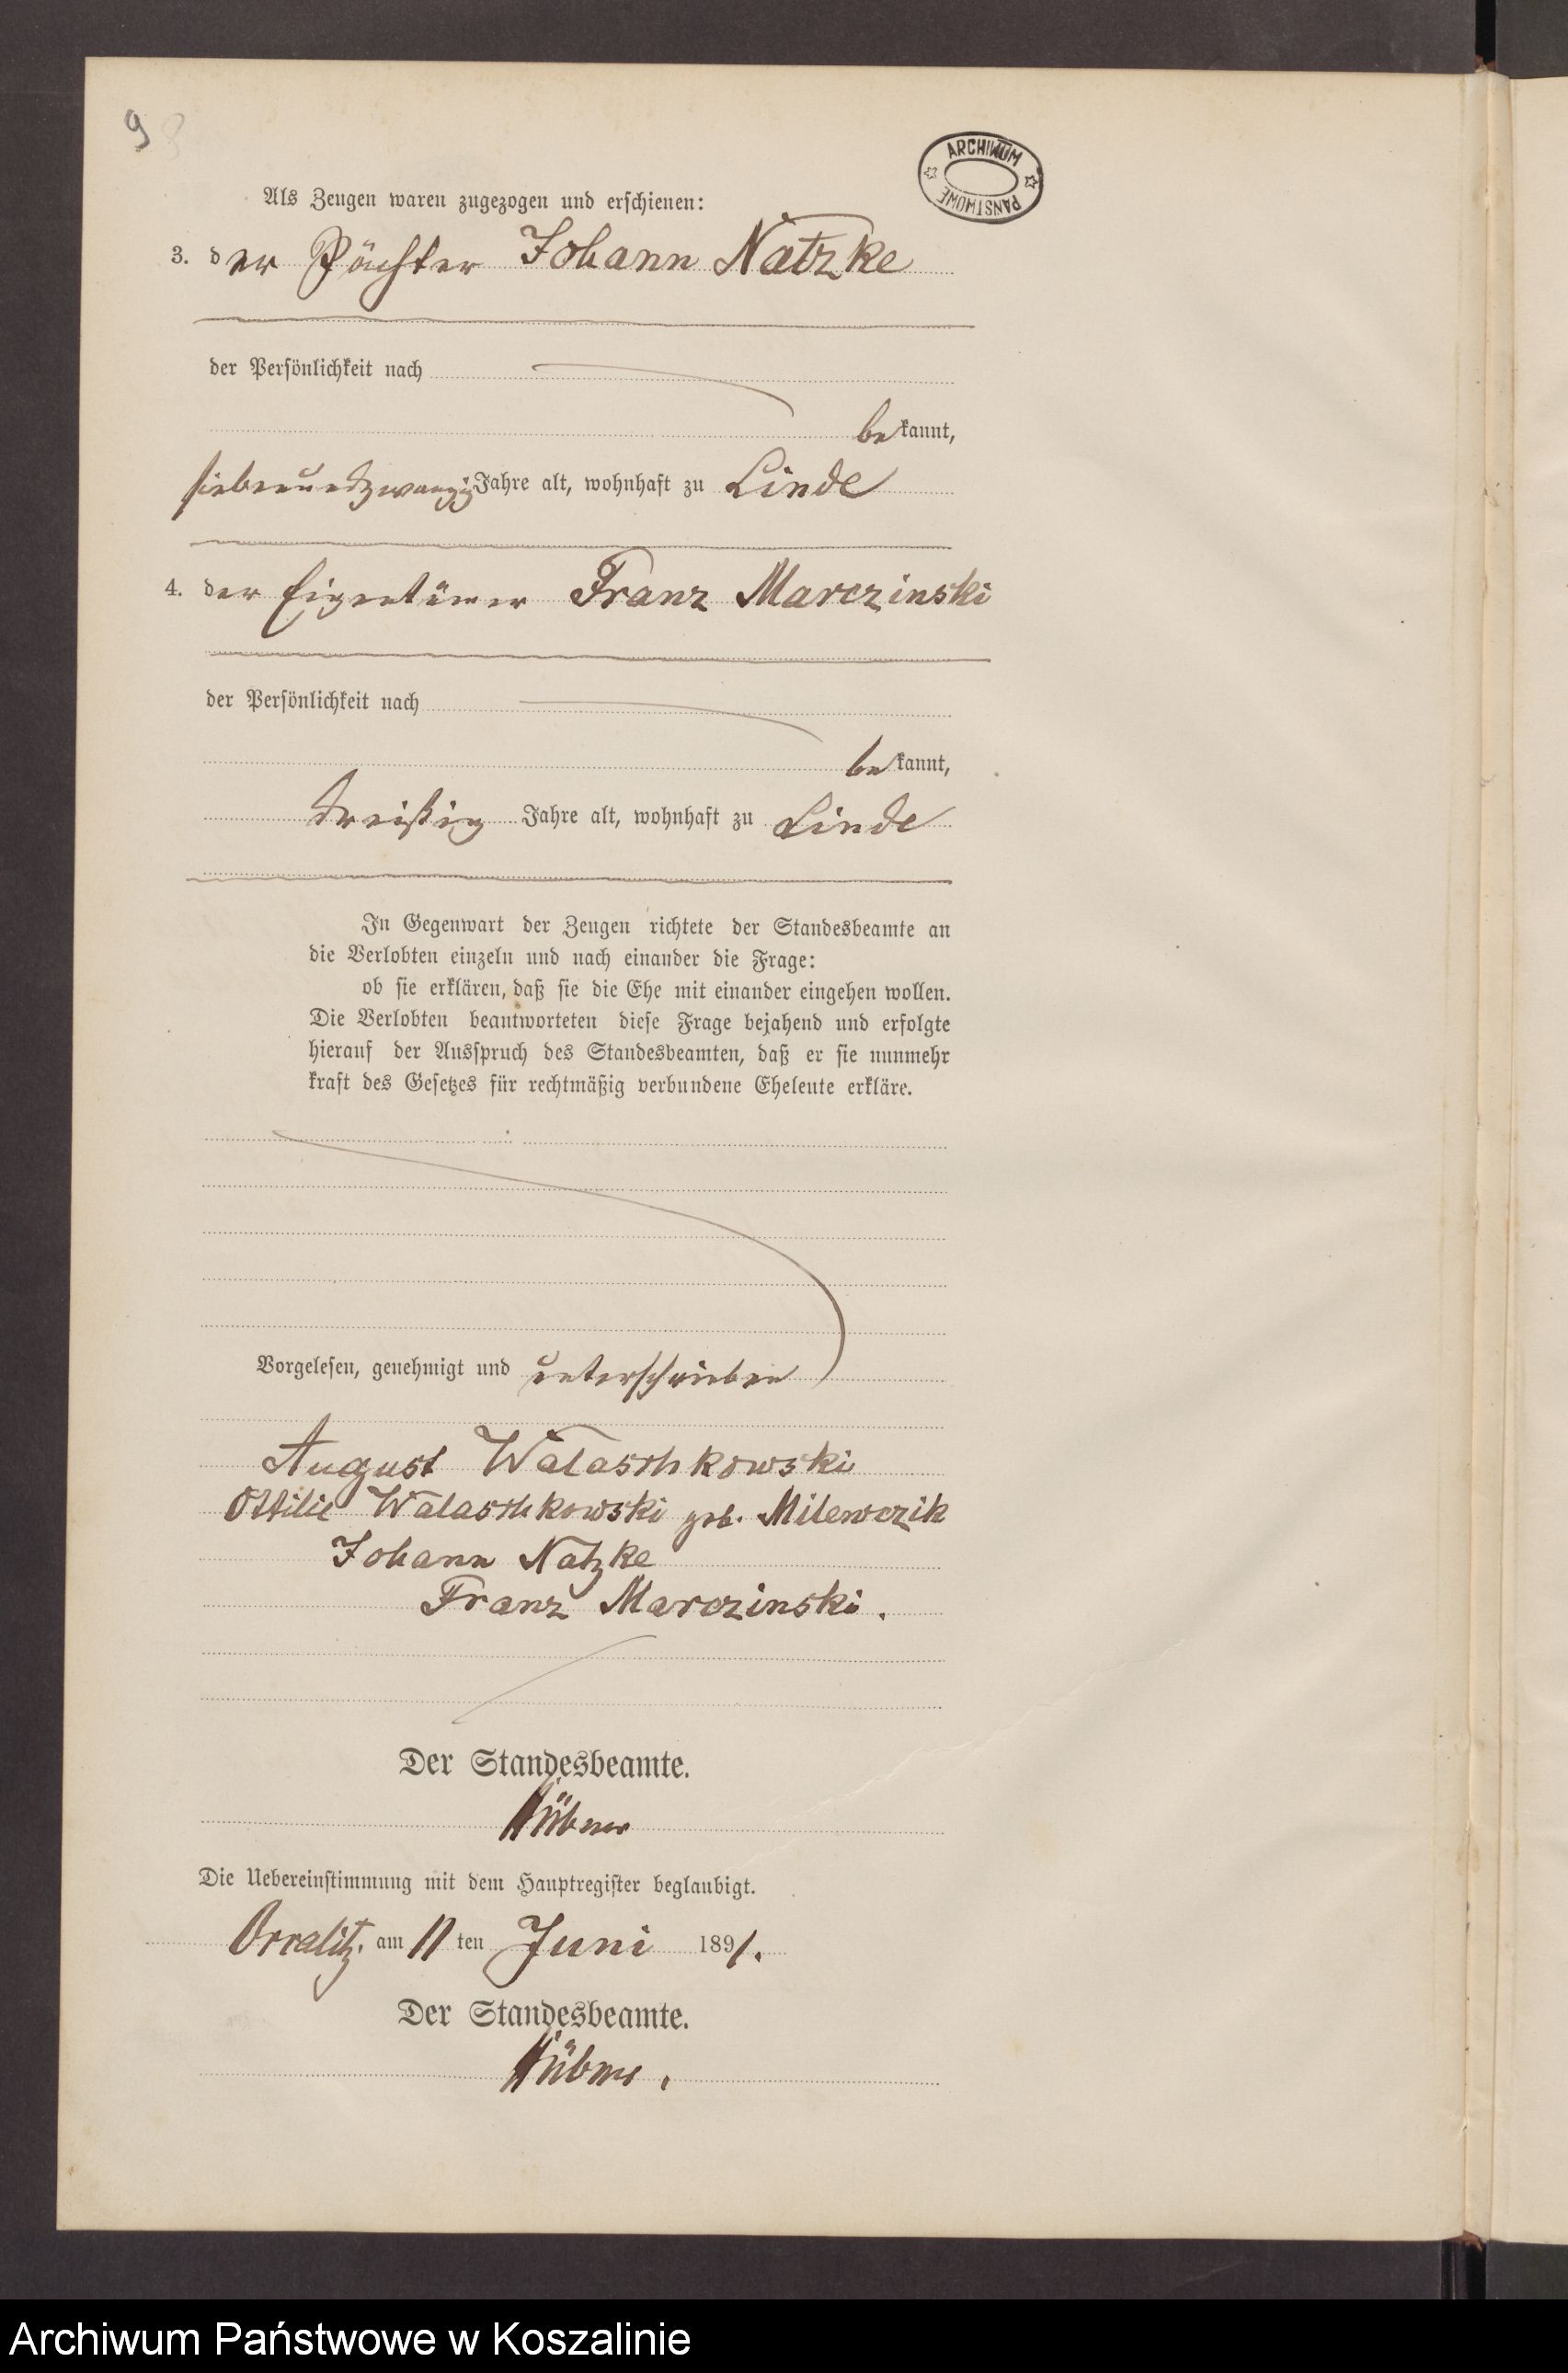 9
ARCHIWUM PAŃSTWOWE
Als Zeugen waren zugezogen und erschienen:
3. der Pächter Johann Natzke
der Persönlichkeit nach
bekannt,
siebenundzwanzig Jahre alt, wohnhaft zu Linde
4. der Eigentümer Franz Marczinski
der Persönlichkeit nach
bekannt,
dreißig Jahre alt, wohnhaft zu Linde
In Gegenwart der Zeugen richtete der Standesbeamte an
die Verlobten einzeln und nach einander die Frage:
ob sie erklären, daß sie die Ehe mit einander eingehen wollen.
Die Verlobten beantworteten diese Frage bejahend und erfolgte
hierauf der Ausspruch des Standesbeamten, daß er sie nunmehr
kraft des Gesetzes für rechtmäßig verbundene Eheleute erkläre.
Vorgelesen, genehmigt und unterschrieben
August Walaschkowski
Ottilie Walaschkowski geb. Milewczik
Johann Natzke
Franz Marczinski.
Der Standesbeamte.
Hübner
Die Uebereinstimmung mit dem Hauptregister beglaubigt.
am 11ten Juni 1891.
Der Standesbeamte.
Hübner.
Archiwum Państwowe w Koszalinie